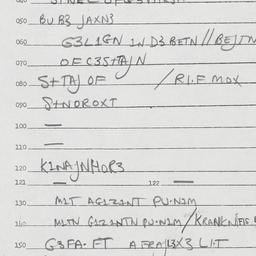 050 BUB3 JAXN3
060 G3L1GN IN D3 BETN//BEJTN
070 OF C3S+TAJN
080 S+TAJ OF / RI.F MOX
090 S+NOROXT
100 —
110 —
120 K1NAJNHOR3
121 — 122 —
130 M1T AG1Z1NT PU·N1M
140 M1TN G1Z1NTN PU·N1M/KRANK
150 G3FA·FT